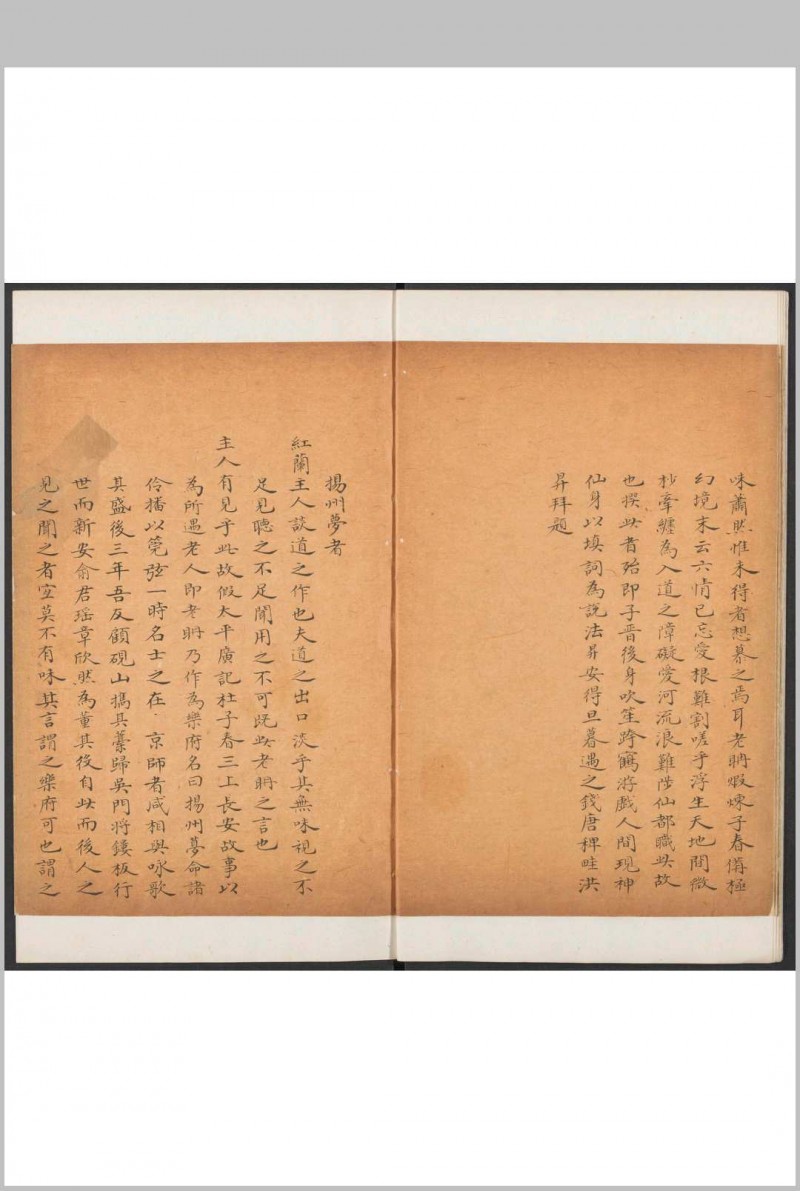 味蕭然惟未得者想慕之焉耳老聃煅煉子春備極
幻境末云六情已忘愛根難割嗟乎浮生天地間微
抄牽纏為入道之障礙愛河流浪難陟仙都職此故
也撰此者殆即子晉後身吹笙跨鶴游戲人間現神
仙身以填詞為說法昇安得旦暮遇之錢唐稗畦洪
昇拜題
揚州夢者
紅蘭主人談道之作也夫道之出口淡乎其無味視之不
足見聽之不足聞用之不可既此老聃之言也
主人有見乎此故假太平廣記杜子春三上長安故事以
為所遇老人即老聃乃作為樂府名曰揚州夢命諸
伶播以筦弦一時名士之在 京師者咸相與咏歌
其盛後三年吾友顧硯山攜其藁歸吳門將鋟板行
世而新安俞君瑤章欣然為董其役自此而後人之
見之聞之者宜莫不有味其言謂之樂府可也謂之